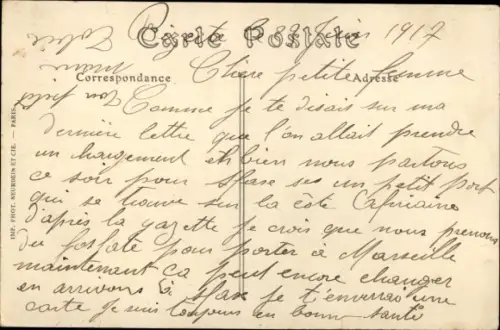 Carte Postale
Bizerte le 22 Juin 1917
Correspondance
Adresse
Chère petite femme
Comme je te disais sur ma
dernière lettre que l'on allait prendre
un chargement eh bien nous partons
ce soir pour Sfax ses un petit port
qui se trouve sur la côte
d'après la gazette je crois que nous prenons
du fosfate pour porter à Marseille
maintenant ca peut encore changer
en arrivons à Sfax je t'enverrai une
carte je suis toujours en bonne santé
ton petit
mari
IMP. PHOT. NEURDEIN ET CIE. — PARIS